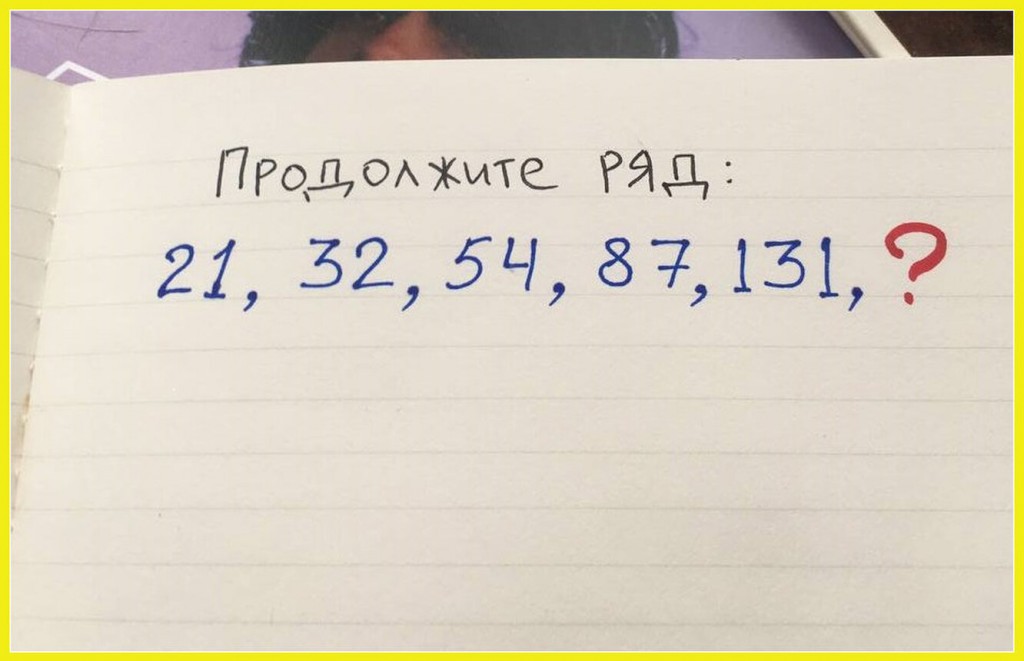 Продолжите ряд:
21, 32, 54, 87, 131, ?